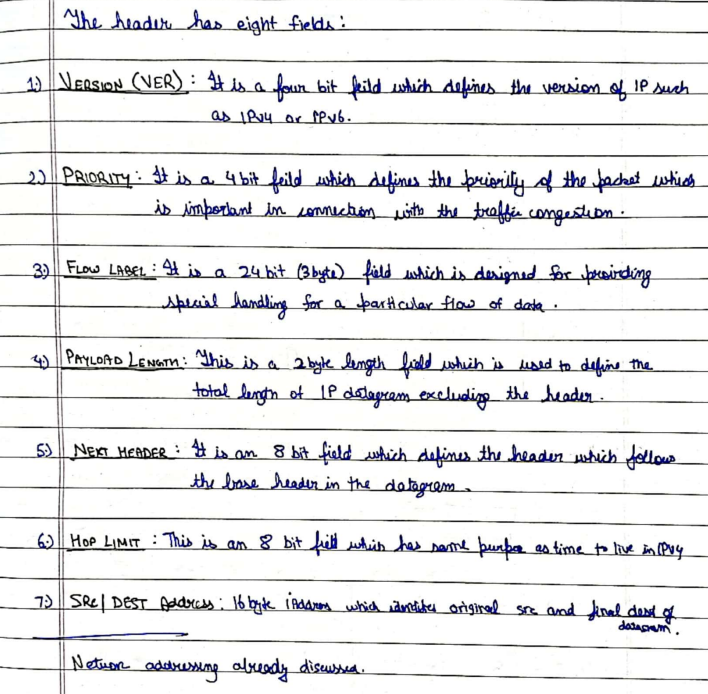 The header has eight fields:
1) VERSION (VER) : It is a four bit feild which defines the version of IP such
as IPv4 or IPv6.
2.) PRIORITY : It is a 4 bit feild which defines the priority of the packet which
is important in connection with the traffic congestion.
3) FLOW LABEL : It is a 24 bit (3 byte) field which is designed for providing
special handling for a particular flow of data.
4) PAYLOAD LENGTH : This is a 2 byte length field which is used to define the
total length of IP datagram excluding the header.
5) NEXT HEADER : It is an 8 bit field which defines the header which follows
the base header in the datagram.
6.) HOP LIMIT : This is an 8 bit field which has same purpose as time to live in IPv4
7.) SRC | DEST Address : 16 byte iAddress which identifies original src and final dest of
datagram.
Network addressing already discussed.